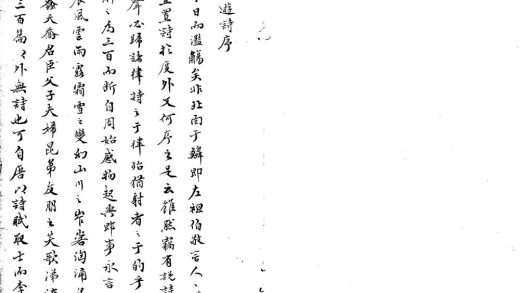 遊詩序
日而濫觴矣非北面于鱗即左袒伯敬吾人〻
置詩於度外又何序之足云雖然竊有說詩
聲必歸諸律詩之于律殆猶射者之于的乎
之為三百而斷自周始感物起興即事永言
風雲雨露霜雪之變幻山川之岝峉洶涌
夭喬君臣父子夫婦昆弟友朋之笑歌涕
三百篇〻外無詩也可自唐以詩賦取士而李